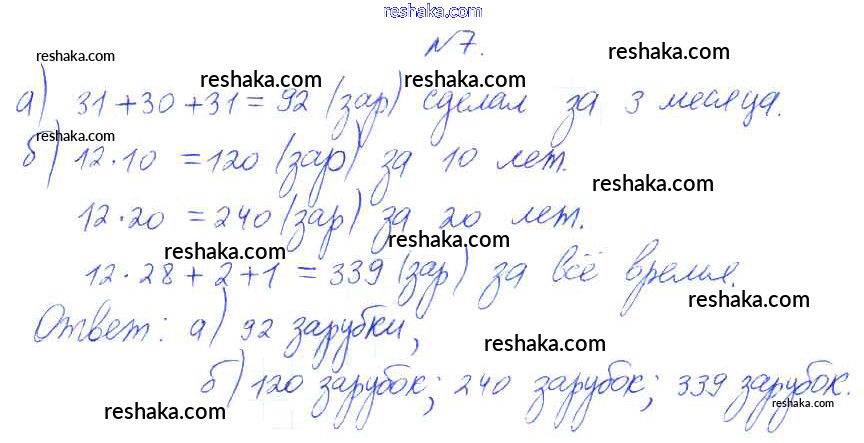 reshaka.com
№7.
reshaka.com reshaka.com
reshaka.com reshaka.com
а) 31+30+31=92 (зар) сделал за 3 месяца.
reshaka.com
б) 12·10 =120 (зар) за 10 лет.
reshaka.com
12·20 =240 (зар) за 20 лет.
reshaka.com reshaka.com
12·28+2+1 =339 (зар) за всё время.
reshaka.com
Ответ: а) 92 зарубки,
reshaka.com
б) 120 зарубок; 240 зарубок; 339 зарубок.
reshaka.com reshaka.com